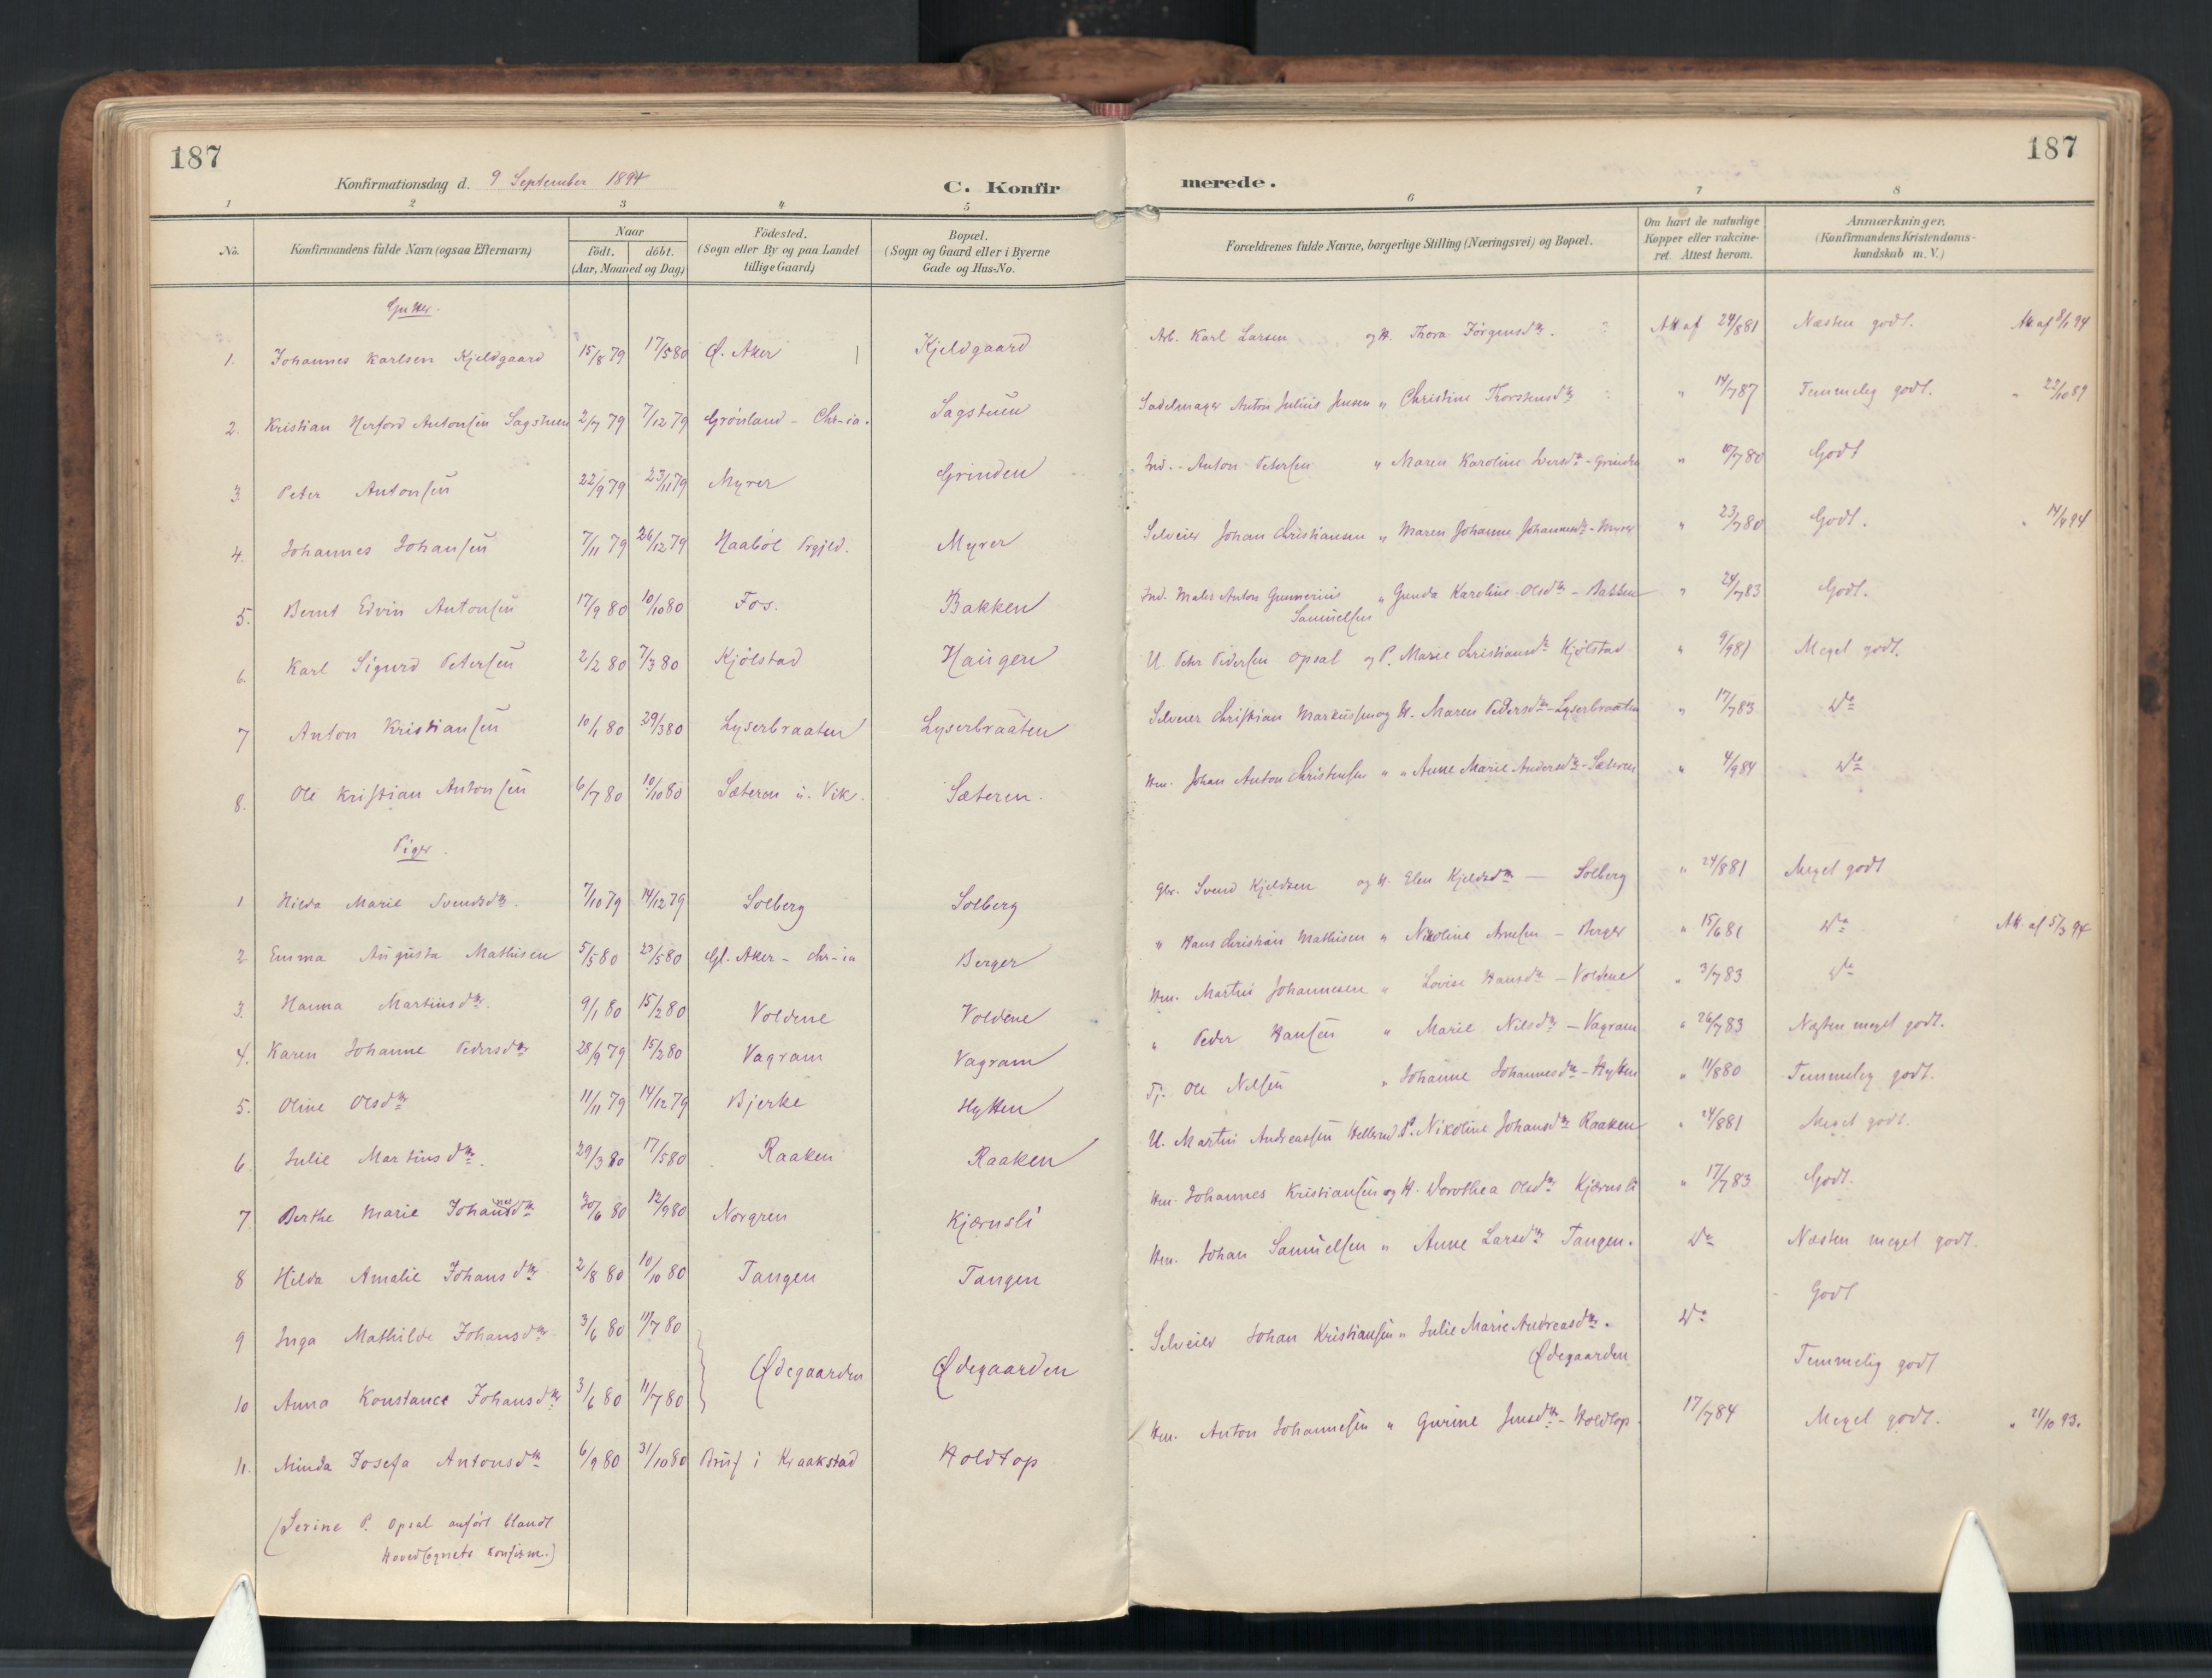 187
187
Konfirmationsdag d. 9 September 1894
C. Konfirmerede.
1 2 3 4 5 6 7 8
No. Konfirmandens fulde Navn (ogsaa Efternavn) Naar födt. döbt. (Aar, Maaned og Dag) Födested. (Sogn eller By og paa Landet tillige Gaard) Bopæl. (Sogn og Gaard eller i Byerne Gade og Hus-No. Forældrenes fulde Navne, borgerlige Stilling (Næringsvei) og Bopæl. Om havt de naturlige Kopper eller vakcineret. Attest herom. Anmærkninger. (Konfirmandens Kristendomskundskab m. V.)
Gutter.
1. Johannes Karlsen Kjeldgaard 15/8 79 17/5 80 Ø. Aker Kjeldgaard Arb. Karl Larsen og H. Thora Jörgensdtr. Att af 24/8 81 Næsten godt. Att af 8/1 94
2. Kristian Herford Antonsen Sagstuen 2/7 79 7/12 79 Grönland - Chr-ia. Sagstuen Sadelmager Anton Julius Jensen " Christine Thorstensdtr " 14/7 87 Temmelig godt. " 22/10 89
3. Peter Antonsen 22/9 79 23/11 79 Myrer Grinden Ind. - Anton Petersen " Maren Karoline Iversdtr - Grinden " /7 80 Godt
4. Johannes Johansen 7/11 79 26/12 79 Haaböl Prgjld. Myrer Selveier Johan Christiansen " Maren Johanne Johannesdtr - Myrer " 23/7 80 Godt. " 14/4 94
5. Bernt Edvin Antonsen 17/9 80 10/10 80 Fos. Bakken Ind. Maler Anton Gunnerius Samuelsen " Gunda Karoline Olsdtr - Bakken " 24/7 83 Godt.
6. Karl Sigurd Petersen 2/2 80 7/3 80 Kjölstad Haugen U. Pehr Pedersen Opsal og P. Marie Christiansdtr Kjölstad " 9/9 81 Meget godt.
7 Anton Kristiansen 10/1 80 29/3 80 Lyserbraaten Lyserbraaten Selveier Christian Markussen og H. Maren Pedersdtr - Lyserbraaten " 17/7 83 Do
8. Ole Kristian Antonsen 6/7 80 10/10 80 Sæteren u. Vik. Sæteren. Hm. Johan Anton Christensen " " Anne Marie Andersdtr - Sæteren " 4/9 84 Do
Piger.
1 Hilda Marie Svendsdtr. 7/10 79 14/12 79 Solberg Solberg Gbr. Svend Kjeldsen og H. Elen Kjeldsdtr — Solberg " 24/8 81 Meget godt
2 Emma Augusta Mathisen 5/5 80 23/5 80 Gl. Aker - Chr-ia Berger " Hans Christian Mathisen " Nikoline Arnesen - Berger " 15/6 81 Do Att. af 5/3 94
3. Hanna Martinsdtr. 9/1 80 15/2 80 Voldene Voldene Hm. Martin Johannesen " Lovise Hansdtr - Voldene " 3/7 83 Do
4. Karen Johanne Pedersdtr 28/9 79 15/2 80 Vagram Vagram " Peder Hansen " Marie Nilsdtr - Vagram " 26/7 83 Næsten meget godt.
5. Oline Olsdtr 11/11 79 14/12 79 Bjerke Hytten Tj. Ole Nilsen " Johanne Johannesdtr - Hytten " 11/8 80 Temmelig godt.
6. Julie Martinsdtr. 29/3 80 17/5 80 Raaken Raaken U. Martin Andreassen Hellerud P. Nikoline Johansdtr Raaken " 24/8 81 Meget godt.
7 Berthe Marie Johannesdtr 30/6 80 12/9 80 Norgren Kjærnsli Hm. Johannes Kristiansen og H. Dorothea Olsdtr Kjærnsli " 17/7 83 Godt.
8 Hilda Amalie Johansdtr 2/8 80 10/10 80 Tangen Tangen Hm. Johan Samuelsen " Anne Larsdtr Tangen. Do Næsten meget godt.
9 Inga Mathilde Johansdtr 3/6 80 11/7 80 Ødegaarden Ødegaarden Selveier Johan Kristiansen " Julie Marie Andreasdtr. Ødegaarden Do Godt
10 Anna Konstance Johansdtr 3/6 80 11/7 80 Temmelig godt
11. Minda Josefa Antonsdtr 6/9 80 31/10 80 i Kraakstad Holdtop Hm. Anton Johannesen " Gurine Jensdtr - Holdtop. 17/7 84 Meget godt. " 21/10 93.
(Serine P. Opsal anfört blandt
Hovedsognets Konfirm.)